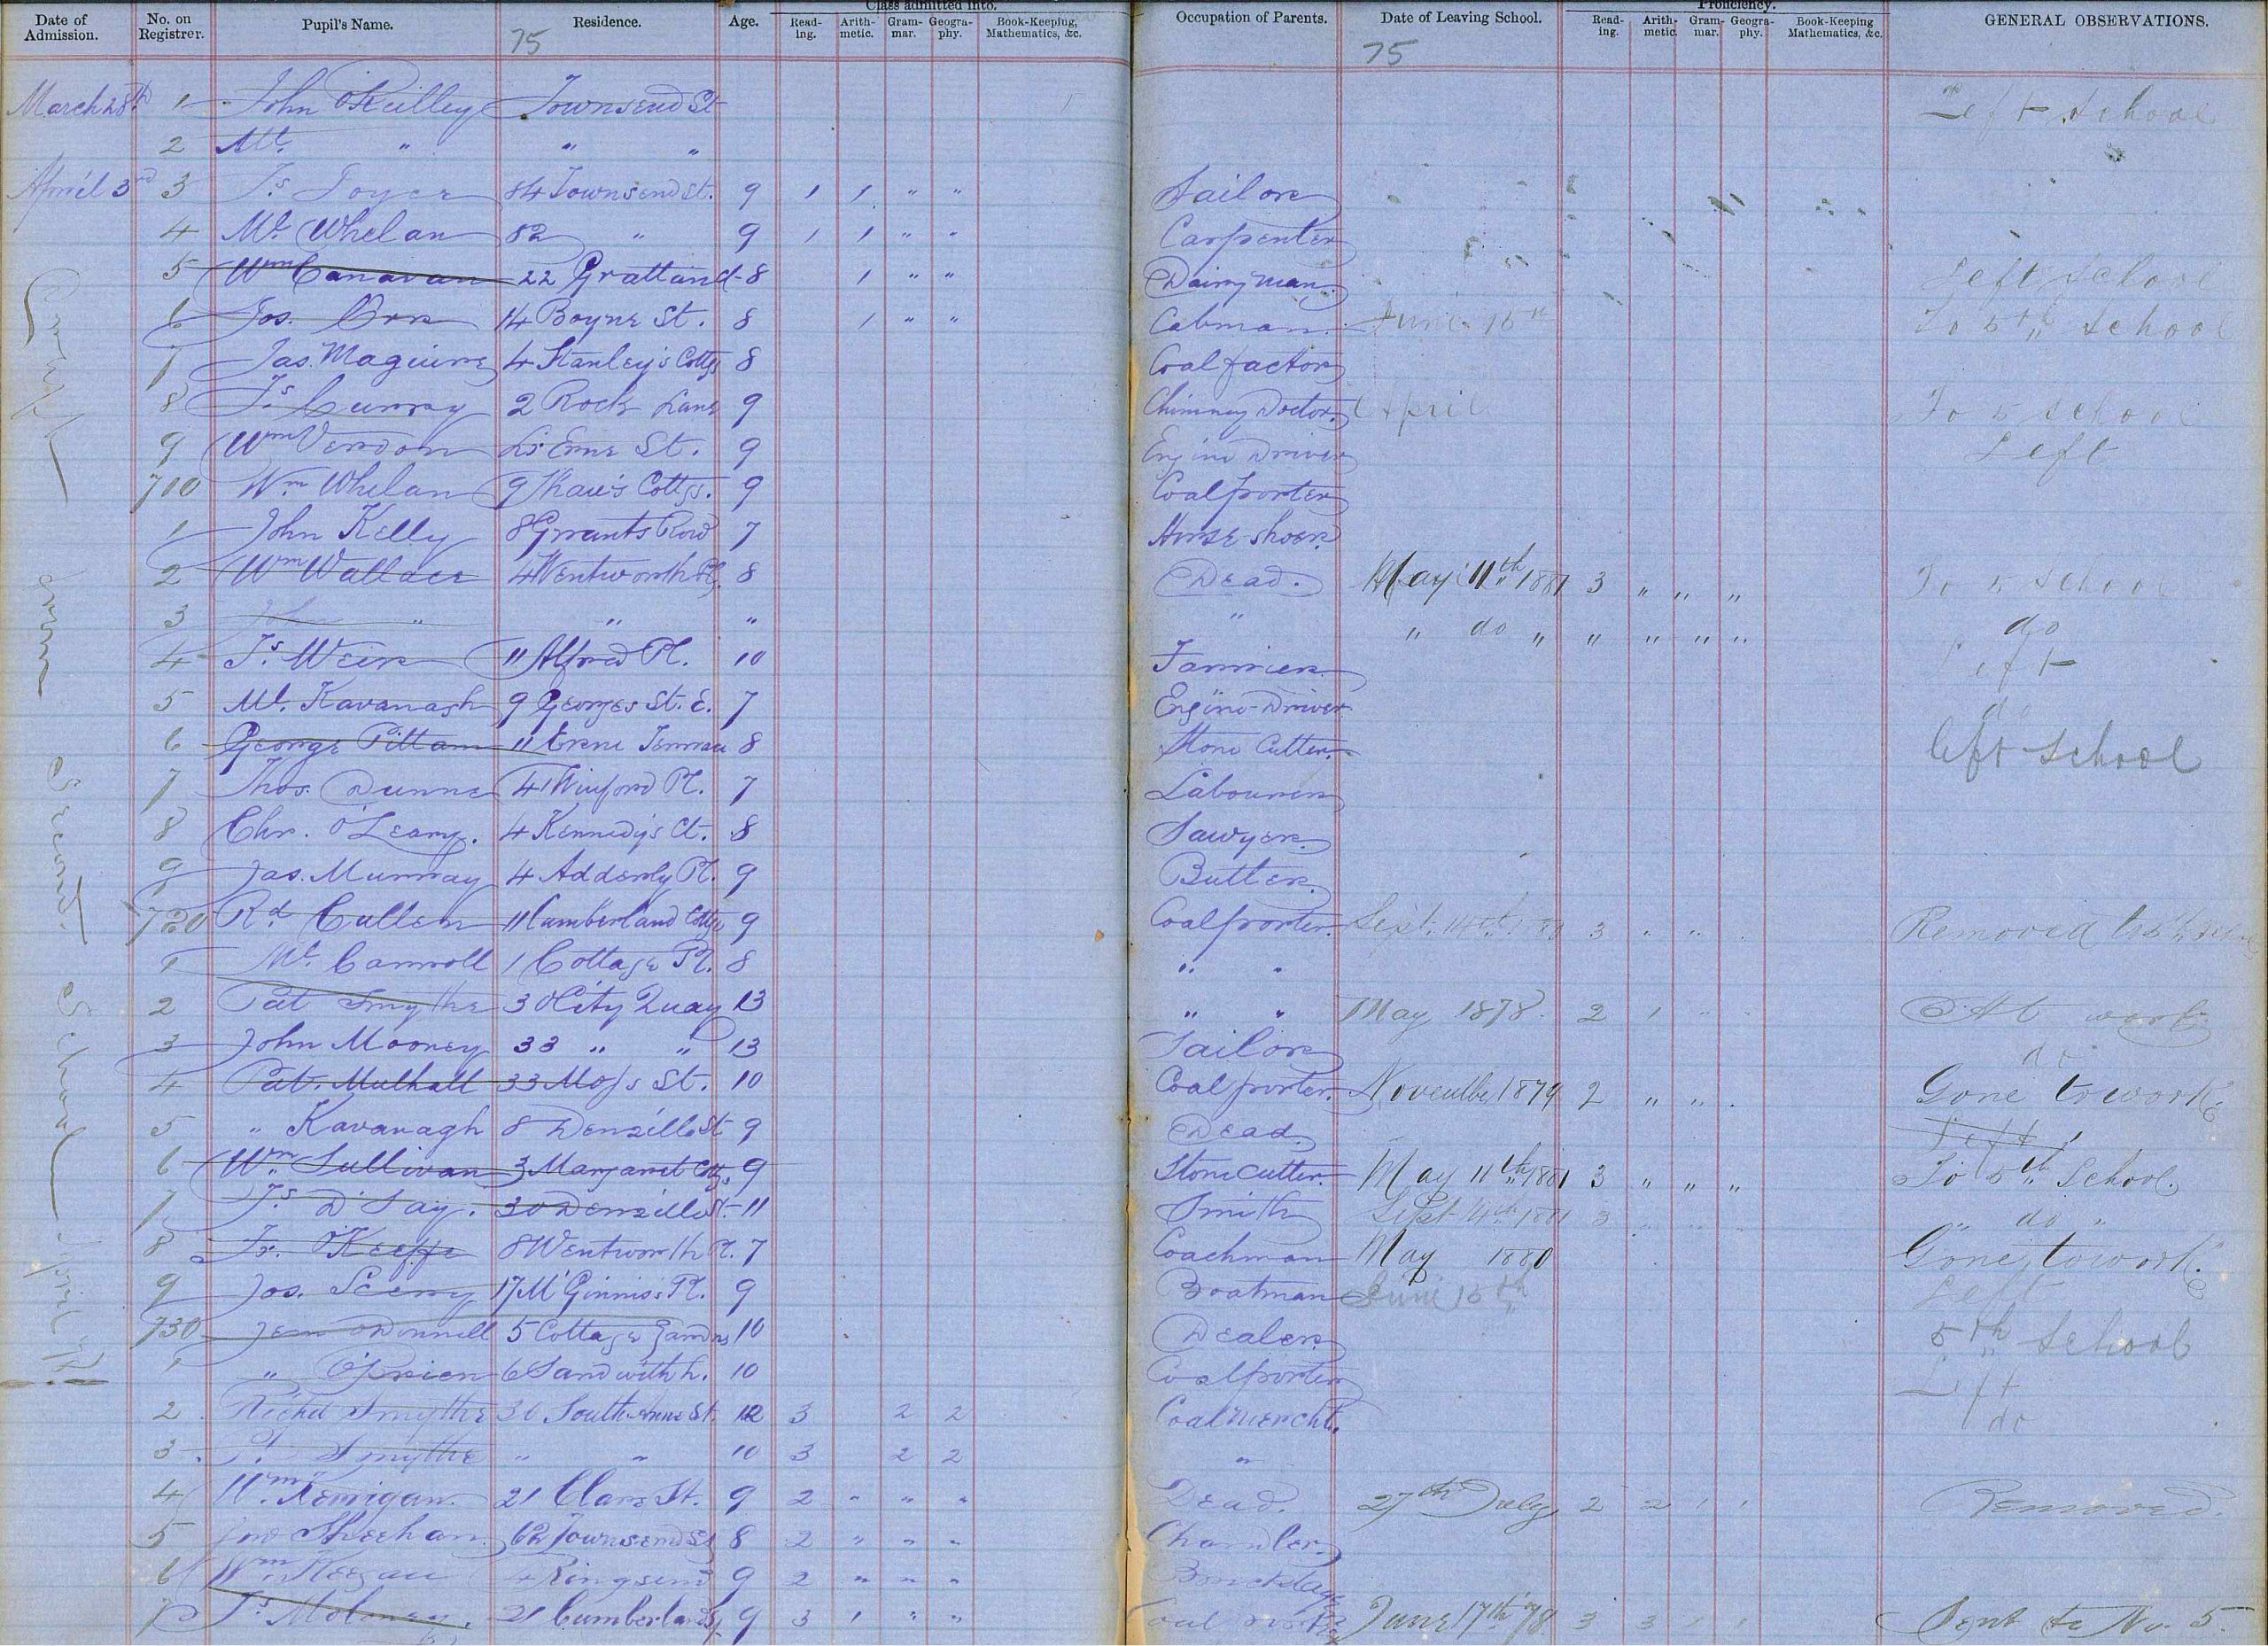 Date of Admission. No. on Registrer. Pupil's Name. Residence. Age. Class admitted into. Read-ing. Arith-metic. Gram-mar. Geogra-phy. Book-Keeping, Mathematics, &c. Occupation of Parents. Date of Leaving School. Proficiency. Read-ing. Arith-metic. Gram-mar. Geogra-phy. Book-Keeping Mathematics, &c. GENERAL OBSERVATIONS.
75 75
March 28th 1 John O'Reilley Townsend St Left school
2 " " "
April 3rd 3 Js 84 Townsend St. 9 1 1 " " Sailor
4 Ml. Whelan 82 " 9 1 1 " " Carpenter
5 Wm Canavan 22 Grattan Ct 8 1 " " Dairyman Left School
6 Jos. Orr 14 Boyne St. 8 1 " " Cabman June 15th To 5th School
7 Jas. Maguire 4 Stanley's Cottgs 8 Coal factor
8 Js. Curray 2 Rock Lane 9 Chimney Doctor April To 5 school
9 Wm Verdon Lr Erne St. 9 Engine Driver Left
710 Wm Whelan 9 Cottgs. 9 Coalporter
1 John Kelly 8 Grants Row 7 Horse-shoer
2 Wm Wallace 4 Wentworth Pl. 8 Dead. May 11th 1881 3 " " " To 5 School
3 " " " " " do " " " " " do
4 Js. Weir 11 Alfred Pl. 10 Farrier Left
5 Ml. Kavanagh 9 Georges St. E. 7 Engine-Driver do
6 George Pittam 11 Erne Terrace 8 Stone Cutter left school
7 Thos. Dunne 4 Winford Pl. 7 Labourer
8 Chr. O'Leary. 4 Kennedy's Ct. 8 Sawyer
9 Jas. Murray 4 Adderly Pl. 9 Butler
720 Rd. Cullen 11 Cumberland Cottgs 9 Coalporter. Sept. 14th 3 " " Removed to 5th
1 Ml. Carroll 1 Cottage Pl. 8 " "
2 Pat Smythe 30 City Quay 13 " " May 1878. 2 1 " " At work
3 John Mooney 33 " " 13 Tailor do
4 Pat. Mulhall 33 Moss St. 10 Coalporter. November 1879 2 " " " Gone to work
5 " Kavanagh 8 Denzille St 9 Dead Left
6 Wm. Sullivan 3 Margaret Cottgs 9 Stonecutter. May 11th 1881 3 " " " To 5th School.
7 Js. D'Say. 30 Denzille St. 11 Smith Sept 14th 1881 3 " do "
8 Fr. O'Keeffe 8 Wentworth Pl. 7 Coachman May 1880 Gone to work.
9 Jos. 17 McGinnis's Pl. 9 Boatman June 15th Left
730 O'Donnell 5 Cottage Gardns 10 Dealer 5th School
1 " O'Brien 6 Sandwith L. 10 Coalporter Left
2 Richd Smythe 30 South Anne St. 12 3 2 2 Coal mercht. do
3 Smythe " " 10 3 2 2 "
4 Wm. Kerrigan 21 Clare St. 9 2 " " " Dead. 27th July 2 2 1 1 Removed.
5 Sheehan 62 Townsend St 8 2 " " " Chandler
6 Wm Keegan 4 Ringsend 9 2 " " "
7 Js. Moloney. 21 Cumberland St 9 3 1 " " Coal June 17th 78 3 3 1 1 Sent to No. 5.